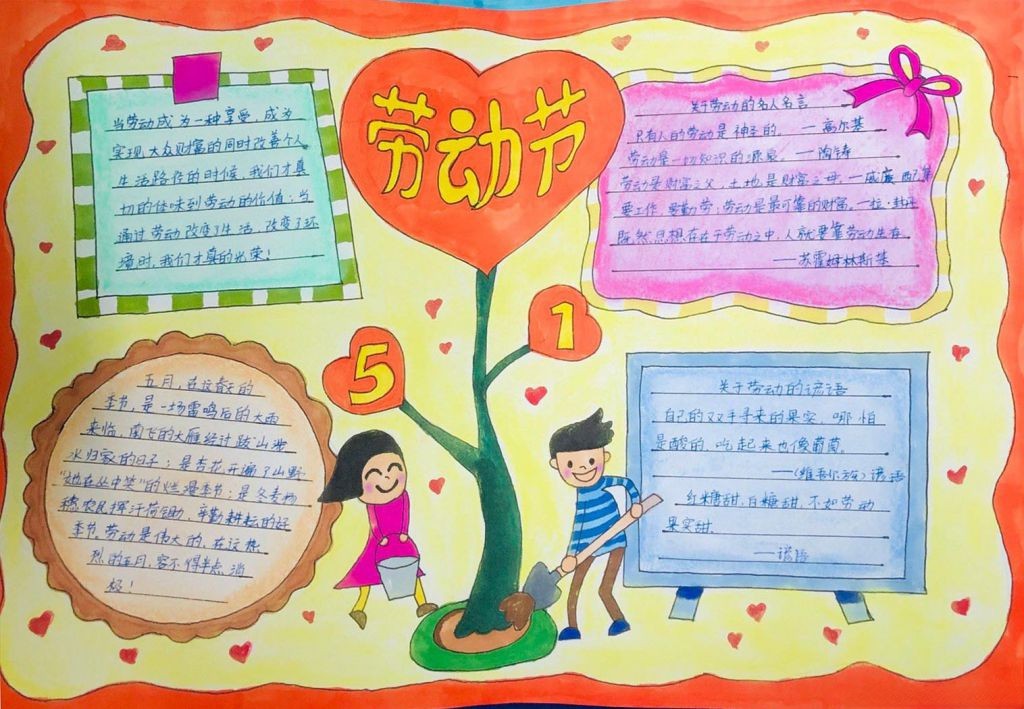 劳动节
5
1
当劳动成为一种享受，成为
实现大众财富的同时改善个人
生活路径的时候，我们才真
切的体味到劳动的价值；当
通过劳动改变了生活，改变了环
境时，我们才真的光荣！
关于劳动的名人名言
只有人的劳动是神圣的。—高尔基
劳动是一切知识的源泉。—陶铸
劳动是财富之父，土地是财富之母。—威廉·配第
要工作，要勤劳；劳动是最可靠的财富。—拉·封丹
既然思想存在于劳动之中，人就要靠劳动生存。
——苏霍姆林斯基
五月，在这春天的
季节，是一场雷鸣后的大雨
来临，南飞的大雁经过跋山涉
水归家的日子；是杏花开遍了山野
“她在丛中笑”的烂漫季节；是冬麦抽
穗，农民挥汗荷锄，辛勤耕耘的好
季节。劳动是伟大的，在这热
烈的五月，容不得半点消
极！
关于劳动的谚语
自己的双手寻来的果实，哪怕
是酸的，吃起来也像葡萄。
——（维吾尔族）谚语
红糖甜，白糖甜，不如劳动
果实甜。
——谚语